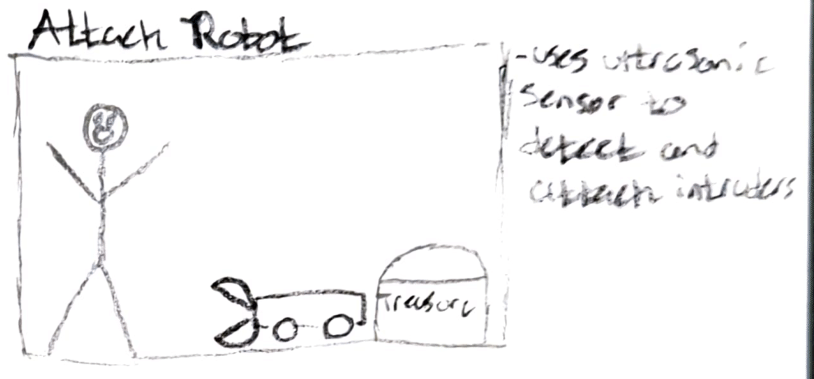 Attack Robot
-uses ultrasonic
sensor to
detect and
attack intruders
Treasure